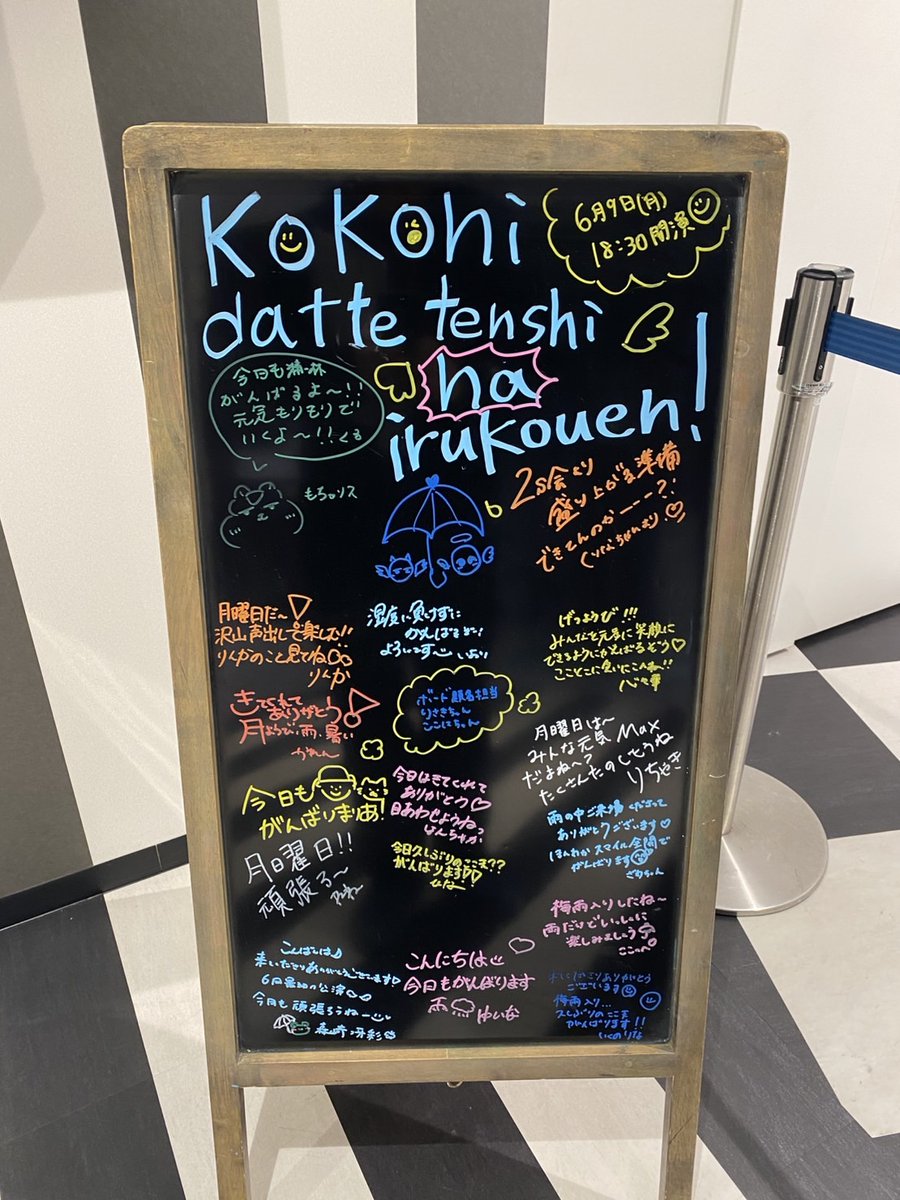 Kokohi
datte tenshi
ha
irukouen!
6月9日(月)
18:30開演
今日も
がんばるよ〜!!
元気もりもりで!
いくよ〜!!
もちゅリス
2s会より
盛り上がる準備
できてんのかーーー?!
月曜日だ〜
沢山声出して楽しむ!!
りんかのこと見てね
りんか
湿度に負けずに
がんばるぞ!
よろいです〜
いおり
げつようび!!!
みんなを元気に笑顔に
できるようにがんばるぞう♡
きてくれて
ありがとう
月ようび、雨、暑い
かれん
ボード顔名担当
りさきちゃん
ここにちゃん
月曜日は〜
みんな元気Max
だよね〜?
たくさんたのしもうね
りちゃき
今日も
がんばりまりあ!
今日はきてくれて
ありがとう♡
目あわせようね
雨の中ご来場くださって
ありがとうございます♡
ほんわかスマイル全開で
がんばります
月曜日!!
頑張る〜
今日久しぶりのここま??
がんばります♡
ひな
梅雨入りしたね〜
雨だけどいっしょに
楽しみましょう
こんばんは♪
来ていただきありがとうございます♡
6月最初の公演
今日も頑張ろうね〜
こんにちは
今日もがんばります
雨
ゆいな
ありがとう
ございます
梅雨入り...
久しぶりのここま
がんばります!!
いくのりな